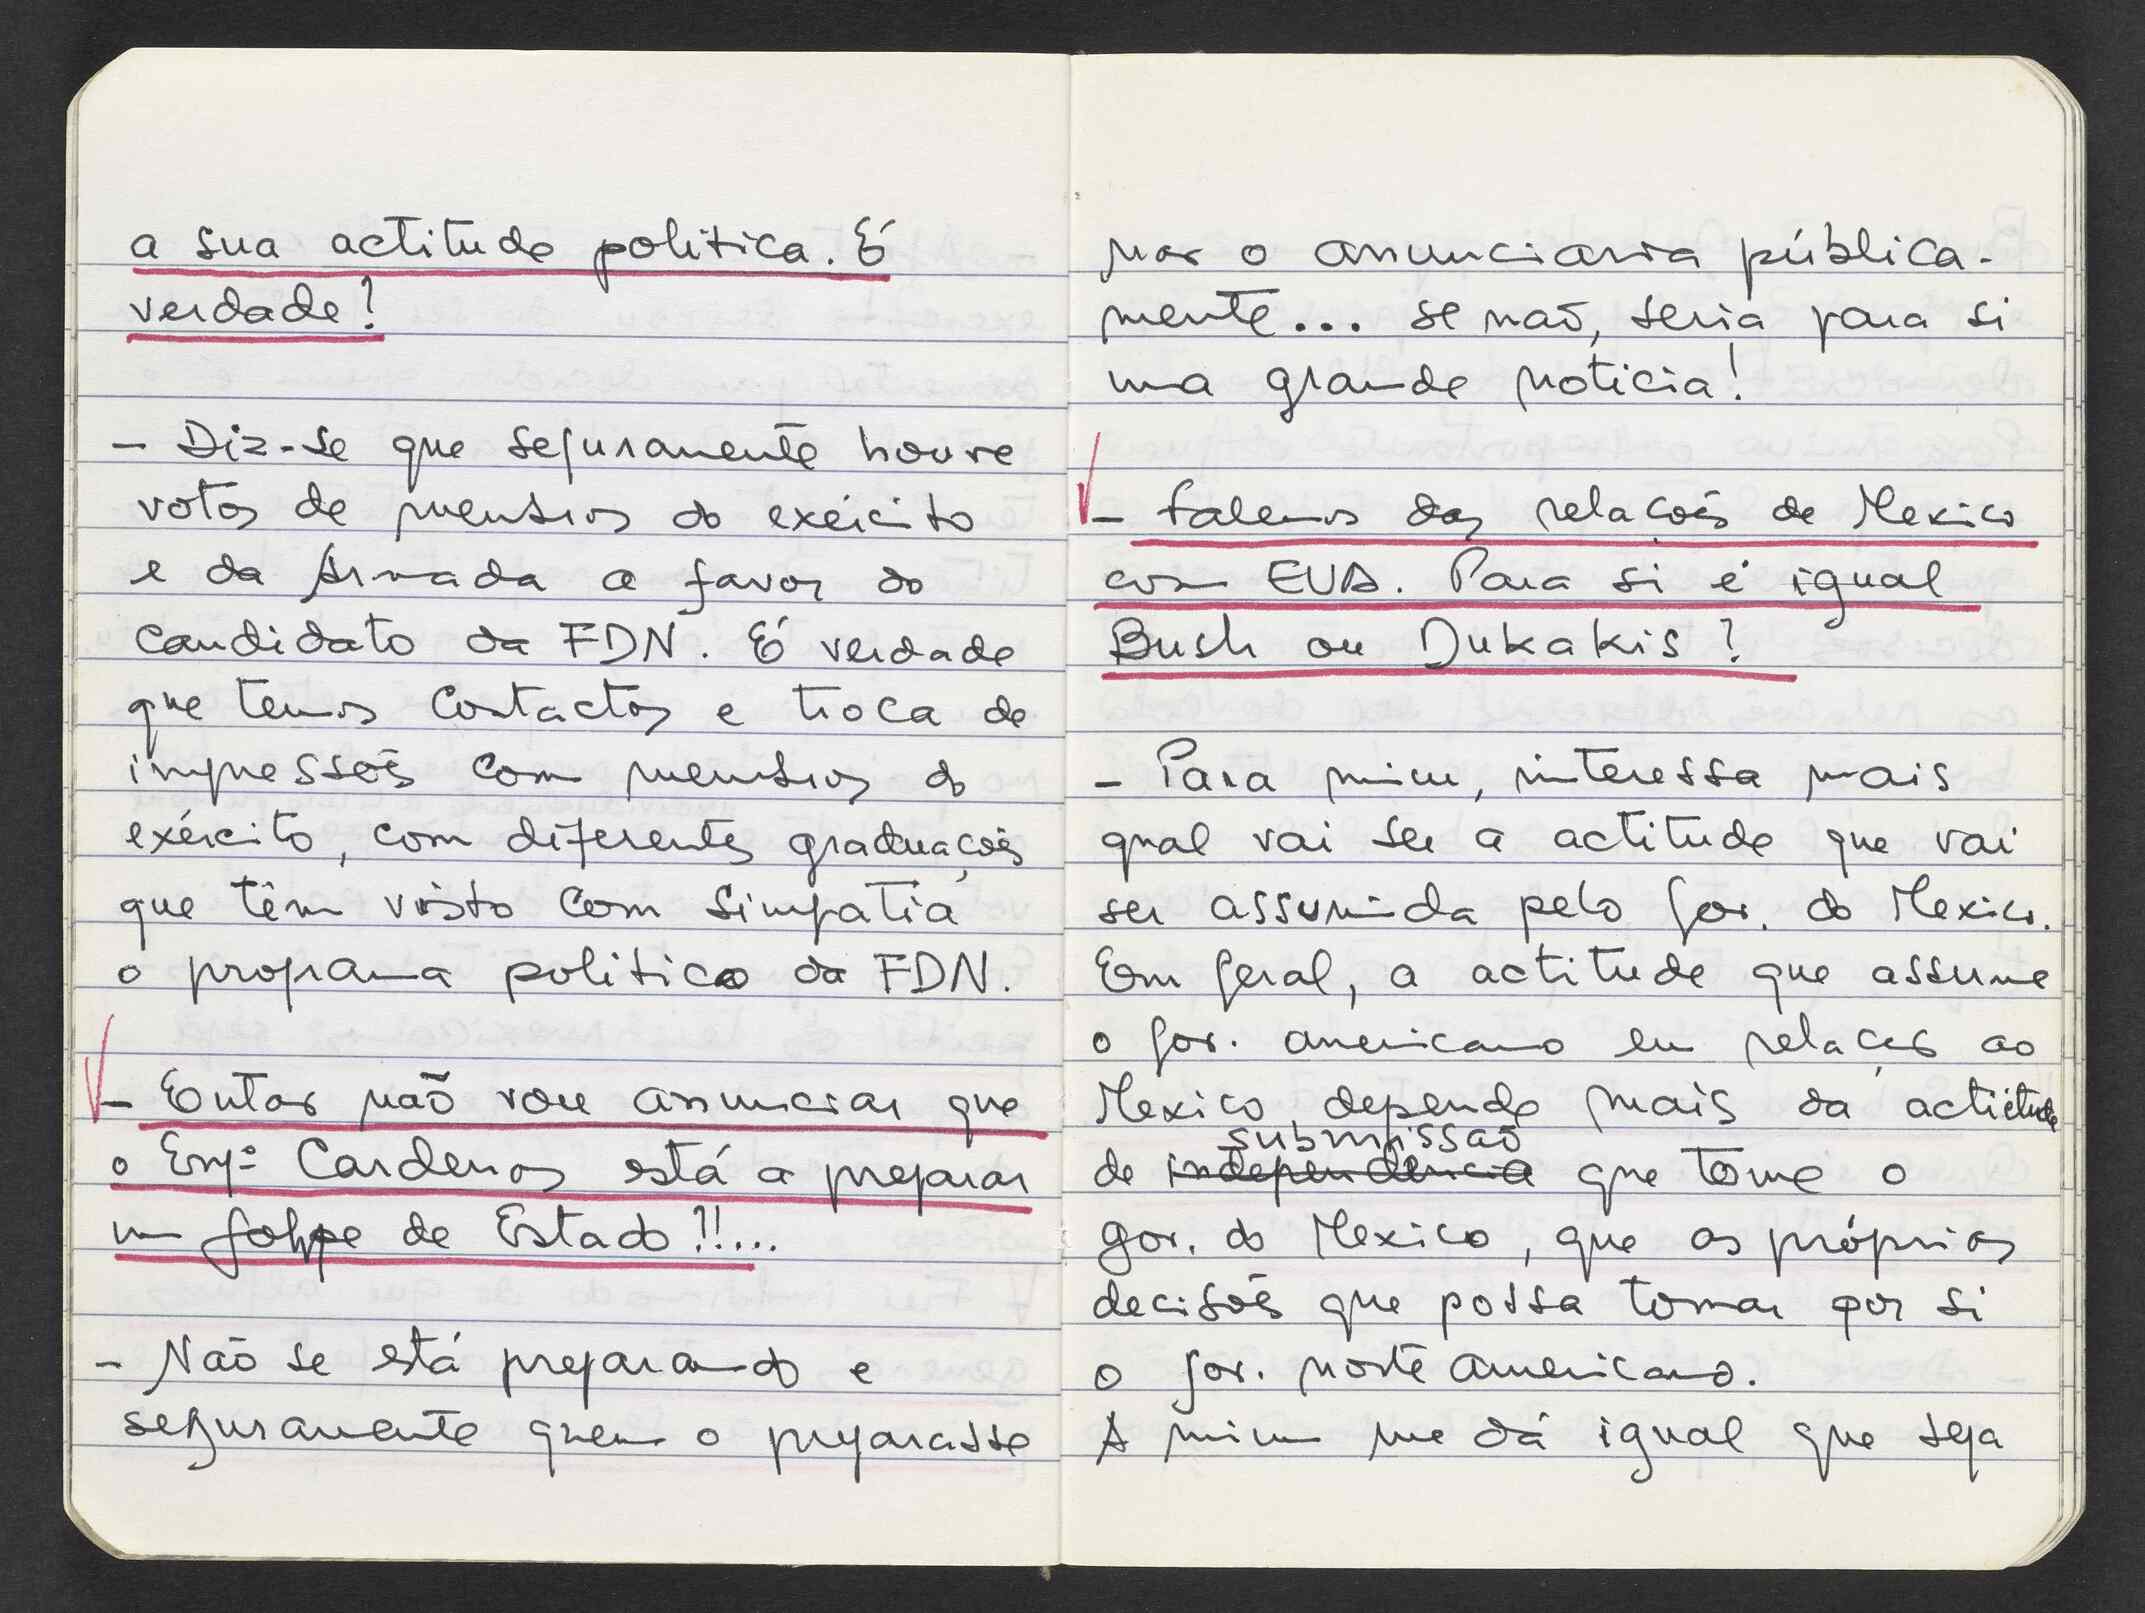 a sua actitude politica. É
verdade?
- Diz-se que seguramente houve
votos de membros do exército
e da Armada a favor do
candidato da FDN. É verdade
que temos contactos e troca de
impressões com membros do
exército, com diferentes graduações
que têm visto com simpatia
o programa politico da FDN.
- Entao não vou anunciar que
o Engº Cardenas está a preparar
um golpe de Estado?!!...
- Não se está preparando e
seguramente quem o preparasse
nao o anunciaria pública-
mente... se não, seria para si
uma grande noticia!
- Falemos das relações de Mexico
com EUA. Para si é igual
Bush ou Dukakis?
- Para mim, interessa mais
qual vai ser a actitude que vai
ser assumida pelo gov. do Mexico.
Em geral, a actitude que assume
o gov. americano em relaçao ao
Mexico depende mais da actitude
submissão
de independencia que tome o
gov. do Mexico, que as próprias
decisões que possa tomar por si
o gov. norte americano.
A mim me dá igual que seja